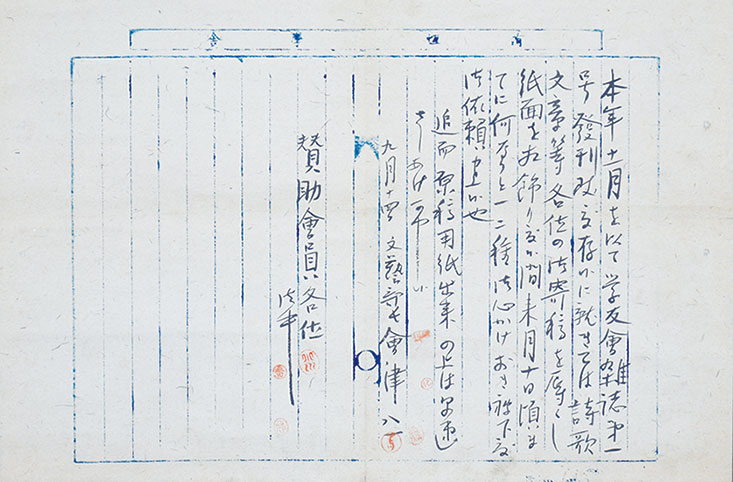 本年十一月を以て学友會雑誌第一
号發刊致度存候に就きては詩歌
文章等各位の御寄稿を辱くし
紙面を相飾り度候間来月十日頃ま
でに何なりと一二種御心がけおき被下度
御依頼申上候也
追而原稿用紙出来の上は早速
さしあげ可申候
九月十四 文藝部 會津八一
賛助會員各位
御中